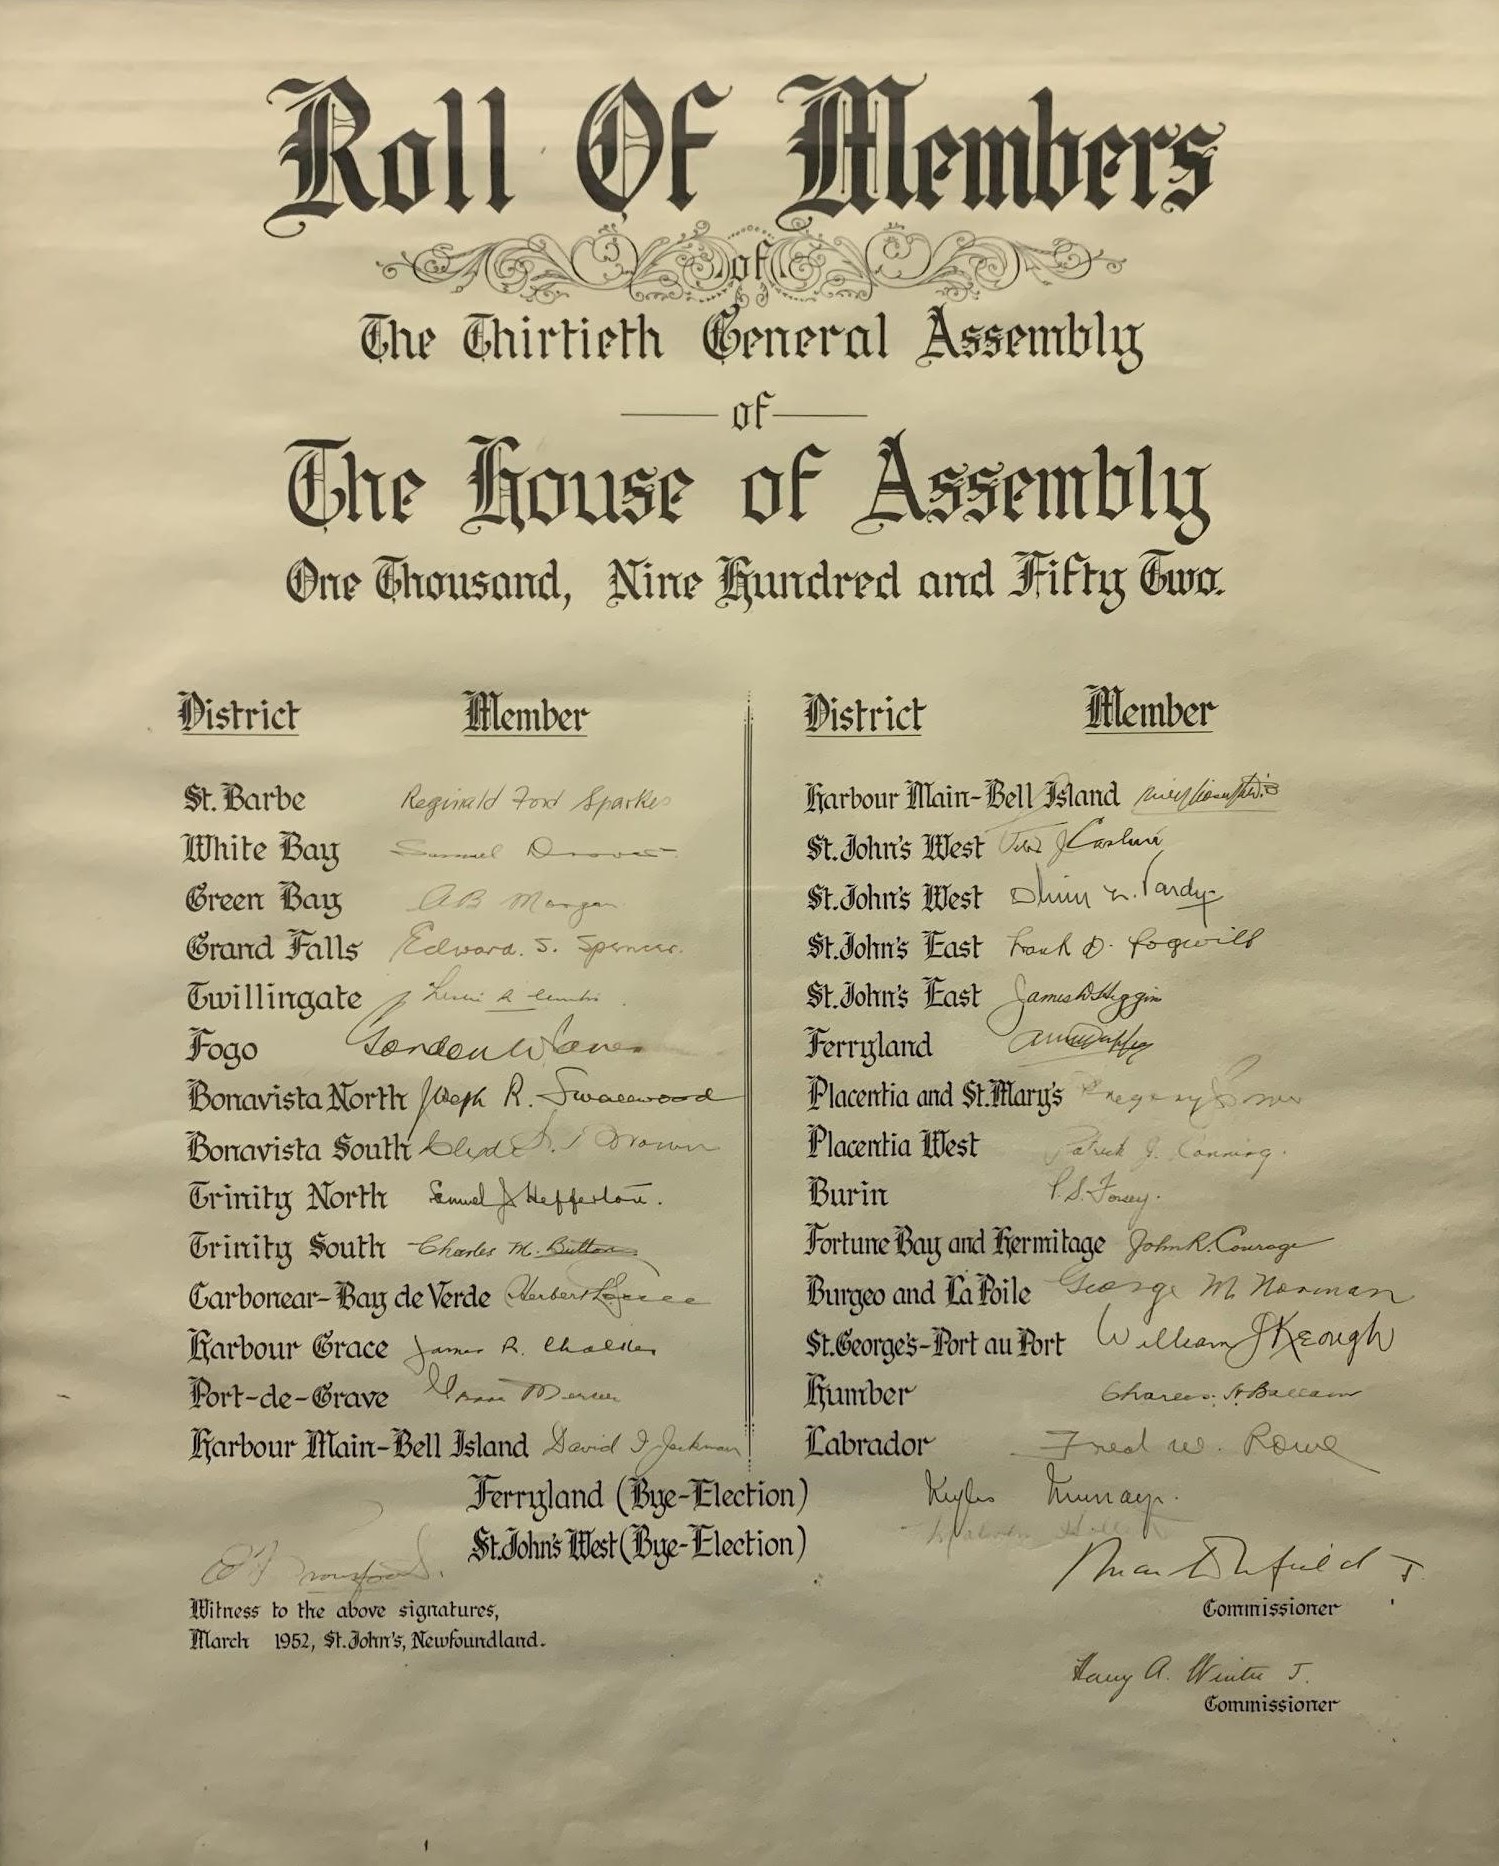 Roll Of Members
of
The Thirtieth General Assembly
of
The House of Assembly
One Thousand, Nine Hundred and Fifty Two.
District Member
St. Barbe Reginald Ford Sparkes
White Bay Samuel Drover
Green Bay AB Morgan
Grand Falls Edward. S. Spencer.
Twillingate
Fogo Gordon W Janes
Bonavista North Joseph R. Smallwood
Bonavista South Brown
Trinity North Samuel J Hefferton.
Trinity South Charles M. Button
Carbonear-Bay de Verde Herbert L
Harbour Grace James R. Chalker
Port-de-Grave Mercer
Harbour Main-Bell Island David I Jackman
District Member
Harbour Main-Bell Island
St. John's West J Cashin
St. John's West Vardy
St. John's East Frank D. Fogwill
St. John's East James D Higgins
Ferryland
Placentia and St. Mary's Gregory J Power
Placentia West Patrick J. Canning.
Burin P.S. Forsey.
Fortune Bay and Hermitage John R. Courage
Burgeo and La Poile George M Norman
St. George's-Port au Port William J Keough
Humber Charles. H. Ballam
Labrador Fred W. Rowe
Ferryland (Bye-Election) Murray.
St. John's West (Bye-Election) Malcolm Hollett
Witness to the above signatures,
March 1952, St. John's, Newfoundland.
Commissioner
Harry A. Winter J.
Commissioner